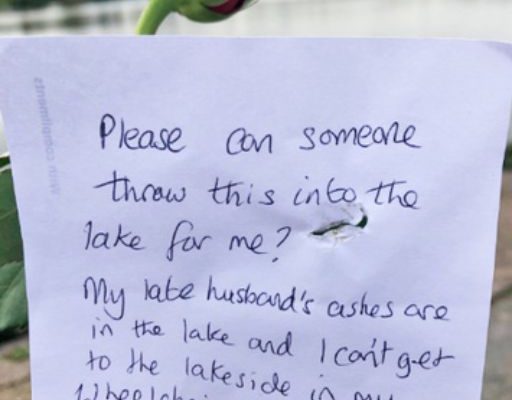 Please can someone
throw this into the
lake for me?
My late husband's ashes are
in the lake and I can't get
to the lakeside in my
with compliments